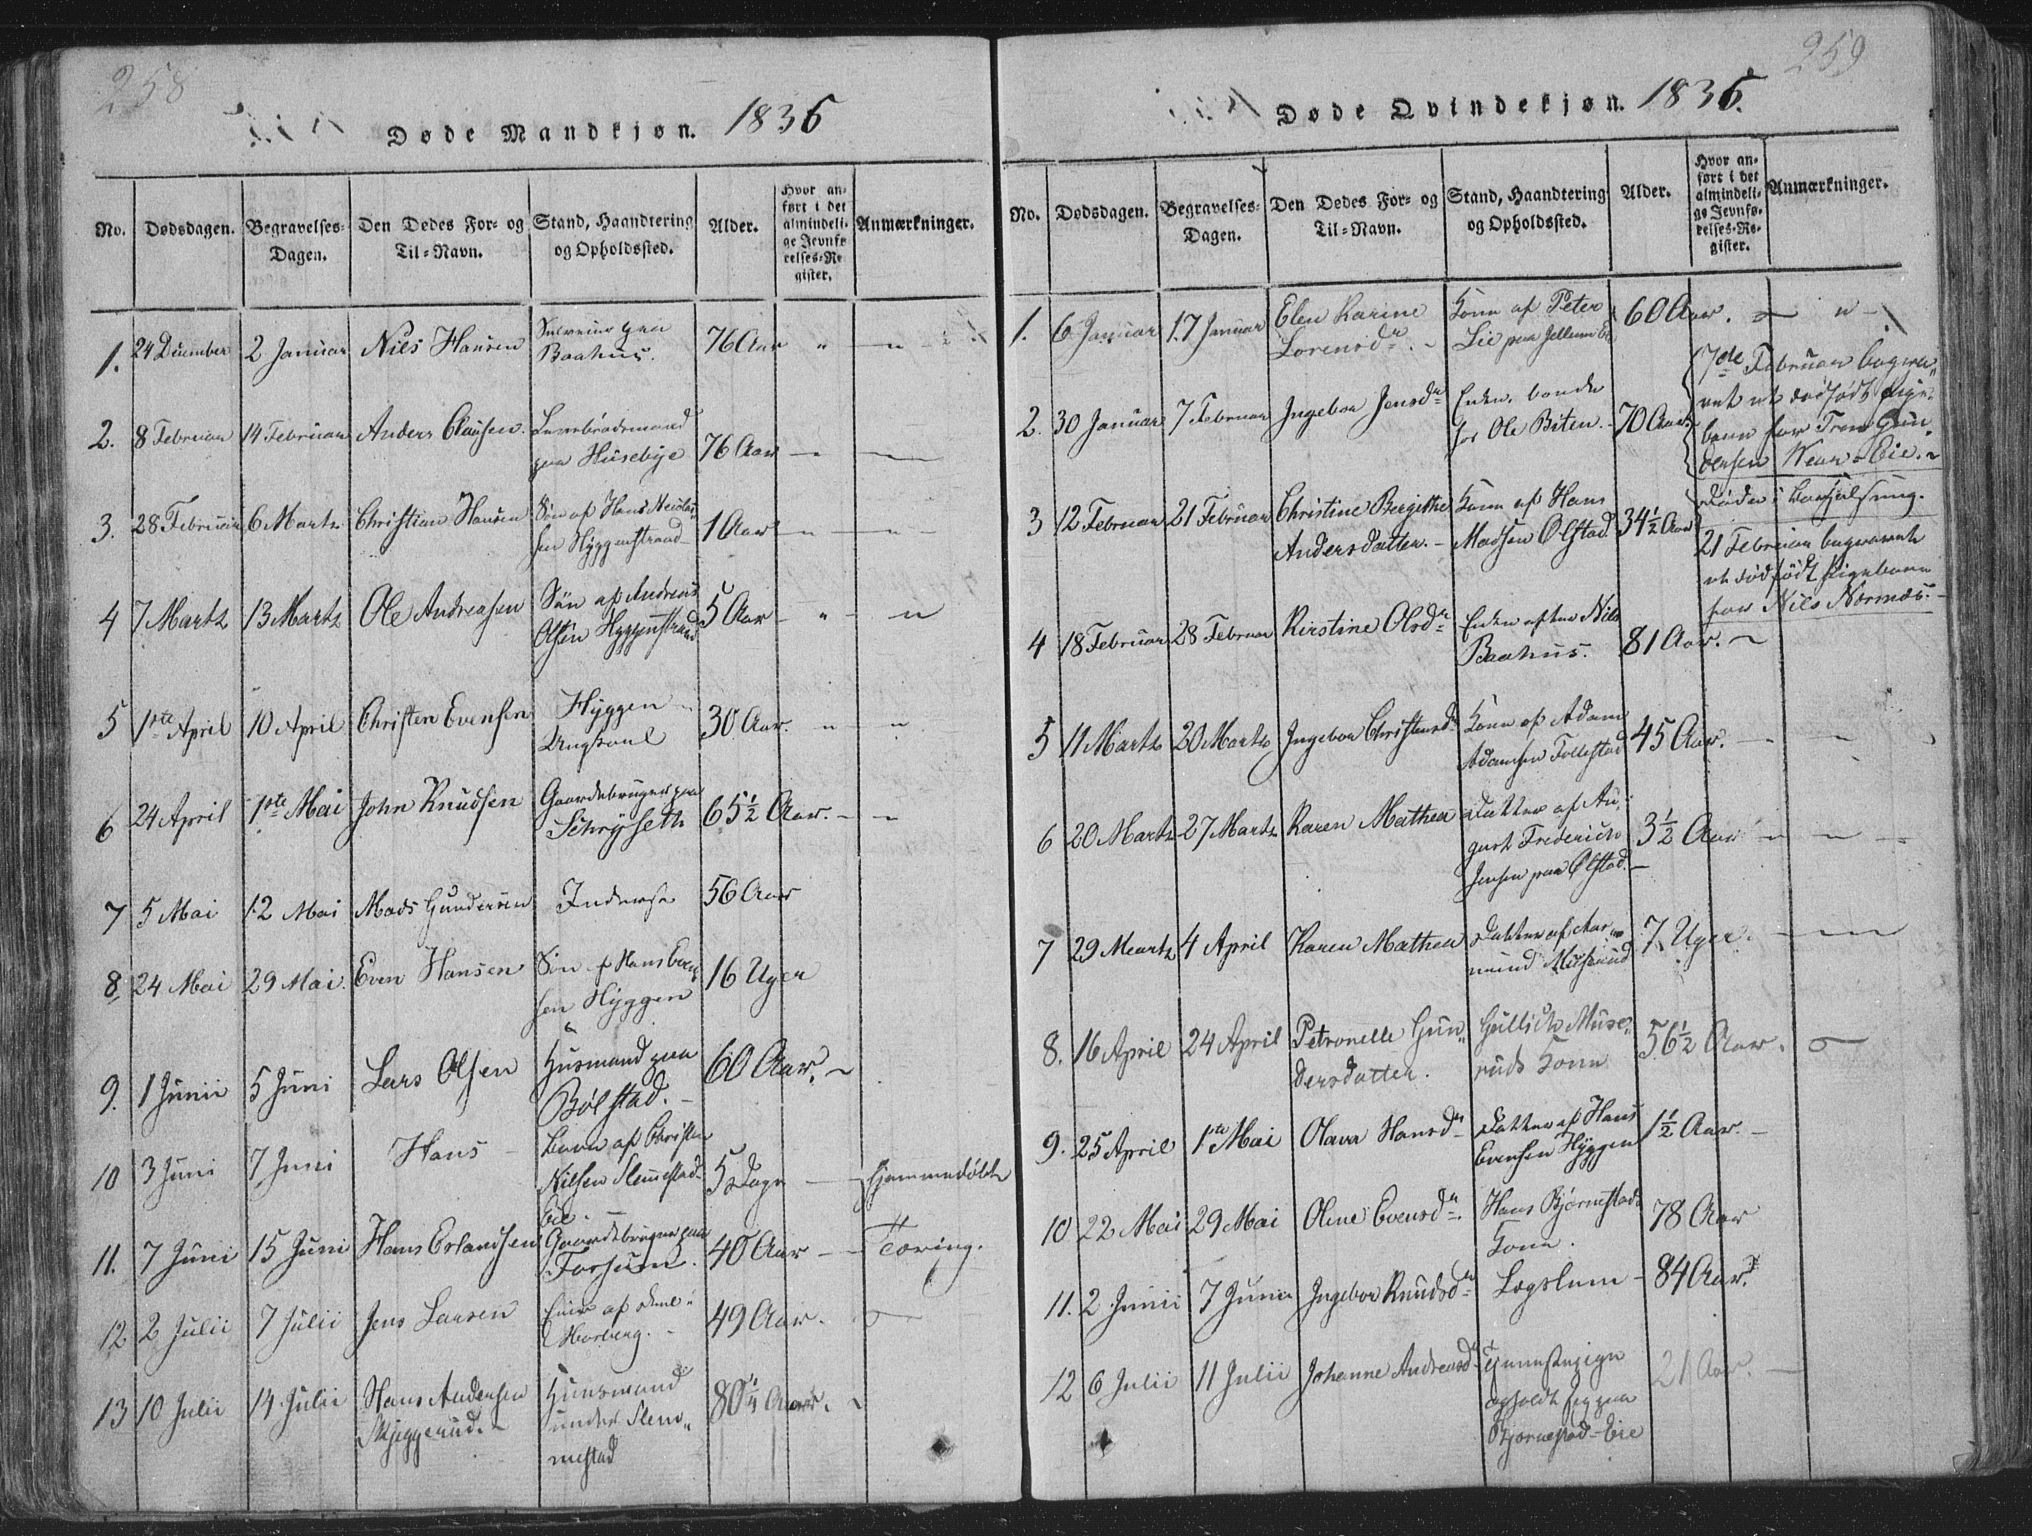 258
Døde Mandkjøn. 1836
No.
Dødsdagen.
Begravelses-
Dagen.
Den Dødes For- og
Til-Navn.
Stand, Haandtering
og Opholdssted.
Alder.
Hvor an-
ført i det
almindeli-
ge Jevnfø-
relses-Re-
gister.
Anmærkninger.
1. 24 December 2 Januar Niels Hansen
paa
Baahus. 76 Aar
2. 8 Februar 14 Februar Anders Clausen.
paa Husebye 76 Aar
3. 28 Februar 6 Marts Christian Hansen Søn af Hans Nicolai
sen Hyggenstrand 1 Aar
4 7 Marts 13 Marts Ole Andreasen Søn af Andreas
Olsen Hyggenstrand 5 Aar
5 1ste April 10 April Christen Evensen Hyggen
Ungkarl 30 Aar.
6 24 April 1ste Mai John Knudsen Gaardebruger paa
65½ Aar.
7 5 Mai 12 Mai Mads Gundersen Inderst 56 Aar
8 24 Mai 29 Mai. Even Hansen Søn af Hans Even
sen Hyggen 16 Uger
9. 1 Junii 5 Juni Lars Olsen Husmand paa
Bølstad. 60 Aar.
10 3 Juni 7 Juni Hans Barn af Christen
Nilsen Slemmestad
Eie. 5 Dage hjemmedøbt
11. 7 Juni 15 Juni Hans Erlandsen Gaardebruger paa
40 Aar Tæring.
12. 2 Julii 7 Julii Jens Larsen
Morberg. 49 Aar.
13 10 Julii 14 Julii Hans Andersen
Skjæggerud. Huusmand
under Slem
mestad 80¼ Aar.
259
Døde Qvindekjøn. 1836.
No.
Dødsdagen.
Begravelses-
Dagen.
Den Dødes For- og
Til-Navn.
Stand, Haandtering
og Opholdssted.
Alder.
Hvor an-
ført i det
almindeli-
ge Jevnfø-
relses-Re-
gister.
Anmærkninger.
1. 6 Januar 17 Januar Elen Karine
Lorensdr. Kone af Peter
Lie paa 60 Aar.
2. 30 Januar 7 Februar Ingebor Jensdr
for Ole Biten. 70 Aar
7de Februar begra
vet et dødfødt Pige
barn for Tron Gun
dersen Kear-Eie.
3 12 Februar 21 Februar Christine Bergithe
Andersdatter. Kone af Hans
Madsen Ølstad. 34½ Aar
Døde i Barselseng.
21 Februar begravet
et dødfødt Pigebarn
for Nils Nærnæs.
4 18 Februar 28 Februar Kirstine Olsdr Enke efter Nils
Baahus. 81 Aar.
5 11 Marts 20 Marts Ingebor Christensdr Kone af Adam
Adamsen Follestad 45 Aar.
6 20 Marts 27 Marts Karen Mathea Datter af Au
gust Frederich
Jensen paa Ølstad. 3½ Aar
7 29 Marts 4 April Karen Mathea Datter af Aar
mund 7 Uger.
8. 16 April 24 April Petronelle Gun
dersdatter. Gullich Muse
ruds Kone 56½ Aar.
9. 25 April 1ste Mai Olava Hansdr Datter af Hans
Evensen Hyggen 1½ Aar.
10 22 Mai 29 Mai Oline Evensdr. Hans Bjørnstads
Kone. 78 Aar
11. 2 Junii 7 Juni Ingebor Knudsdr Lægslem 84 Aar.
12 6 Julii 11 Julii Johanne Andreasdr Tjenestepige
opholdt sig paa
Bjørnstad-Eie 21 Aar.